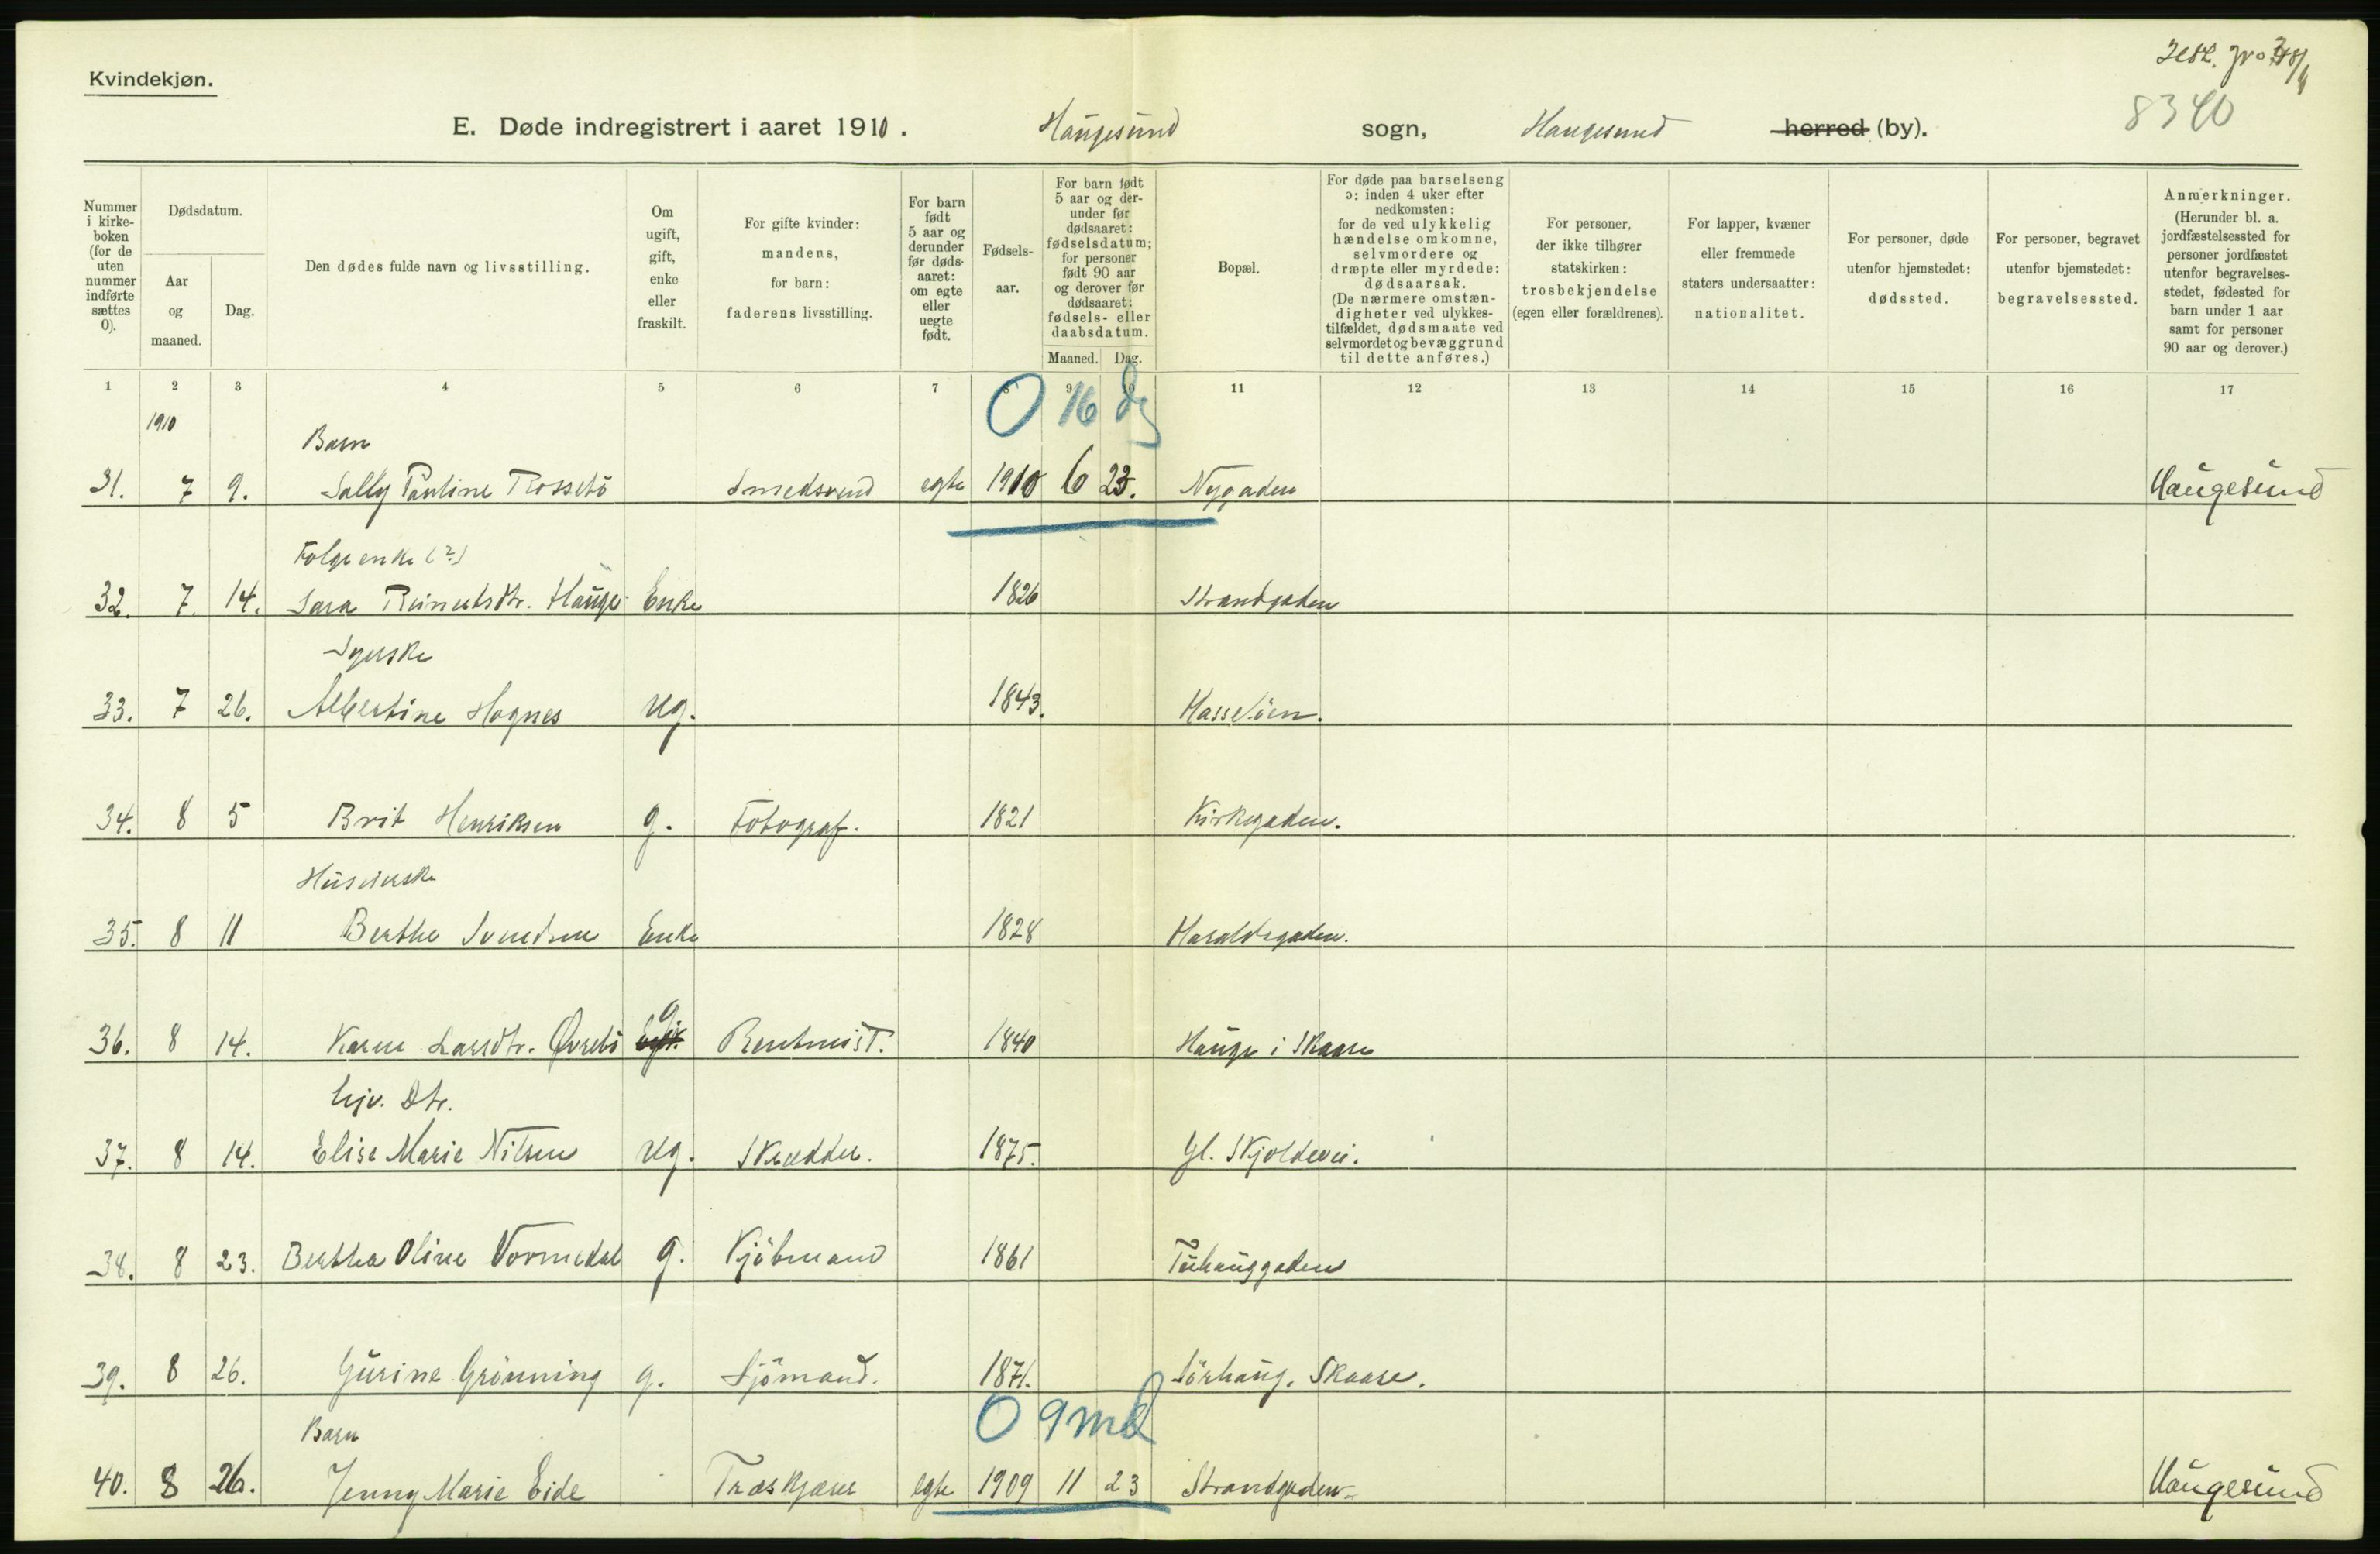 Kvindekjøn.
8340
E. Døde indregistrert i aaret 1910. Haugesund sogn, Haugesund herred (by).
Nummer i kirkeboken (for de uten nummer indførte sættes 0).
Dødsdatum.
Aar og maaned.
Dag.
Den dødes fulde navn og livsstilling.
Om ugift, gift, enke eller fraskilt.
For gifte kvinder: mandens, for barn: faderens livsstilling.
For barn født 5 aar og derunder før dødsaaret: om egte eller uegte født.
Fødselsaar.
For barn født 5 aar og derunder før dødsaaret: fødselsdatum; for personer født 90 aar og derover før dødsaaret: fødsels- eller daabsdatum.
Maaned. Dag.
Bopæl.
For døde paa barselseng ɔ: inden 4 uker efter nedkomsten: for de ved ulykkelig hændelse omkomne, selvmordere og dræpte eller myrdede: dødsaarsak. (De nærmere omstændigheter ved ulykkestilfældet, dødsmaate ved selvmordet og bevæggrund til dette anføres.)
For personer, der ikke tilhører statskirken: trosbekjendelse (egen eller forældrenes).
For lapper, kvæner eller fremmede staters undersaatter: nationalitet.
For personer, døde utenfor hjemstedet: dødssted.
For personer, begravet utenfor hjemstedet: begravelsessted.
Anmerkninger. (Herunder bl. a. jordfæstelsessted for personer jordfæstet utenfor begravelsesstedet, fødested for barn under 1 aar samt for personer 90 aar og derover.)
1 2 3 4 5 6 7 8 9 10 11 12 13 14 15 16 17
1910
0 16 dg
Barn
31. 7 9. Sally Pauline Rossebö Smedsvend egte 1910 6 23. Nygaden Haugesund
Folgeenke (?)
32. 7. 14. Sara Reinertsdtr. Hauge Enke 1826 Strandgaden
Syerske
33. 7 26. Albertine Hagnes ug. 1843. Hasselöen.
34. 8 5 Brit Henriksen g. Fotograf. 1821 Kirkegaden.
35. 8 11 Berthe Svendsen Enke 1828 Haraldsgaden.
g
36. 8 14. Karen Larsdtr. Øvrebö Rentmist. 1840 Hauge i Skaare
hjv. Dtr.
37. 8 14. Elise Marie Nilsen ug. Skrædder. 1875. Gl. Skjoldevei.
38. 8 23. Bertha Oline Vormedal g. Kjöbmand 1861 Tuhauggaden
39. 8 26. Gurine Grönning g. Sjömand. 1871. Sörhaug. Skaare.
0 9 md
Barn
40. 8 26. Jenny Marie Eide Træskjærer egte 1909 11 23 Strandgaden Haugesund